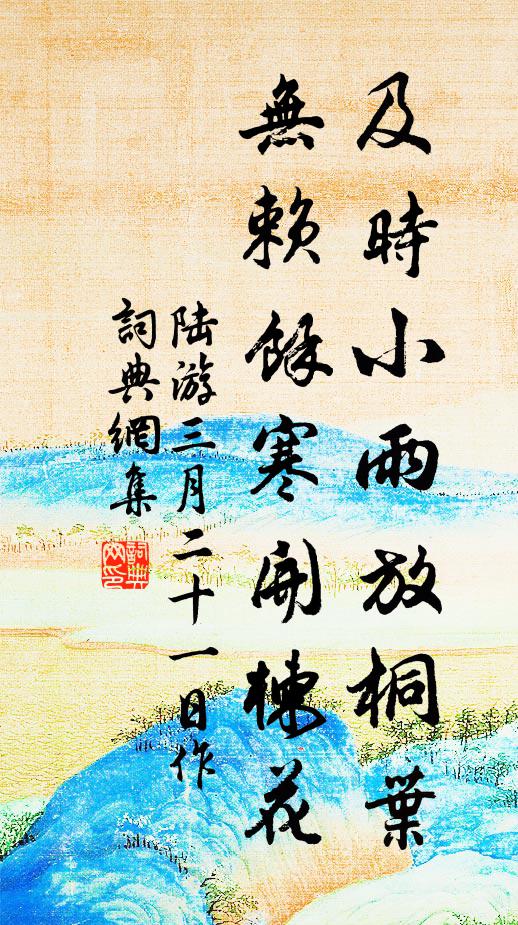 及時小雨放桐葉
無賴餘寒開楝花
陸游三月二十一日作
詞典網集
詞典网印